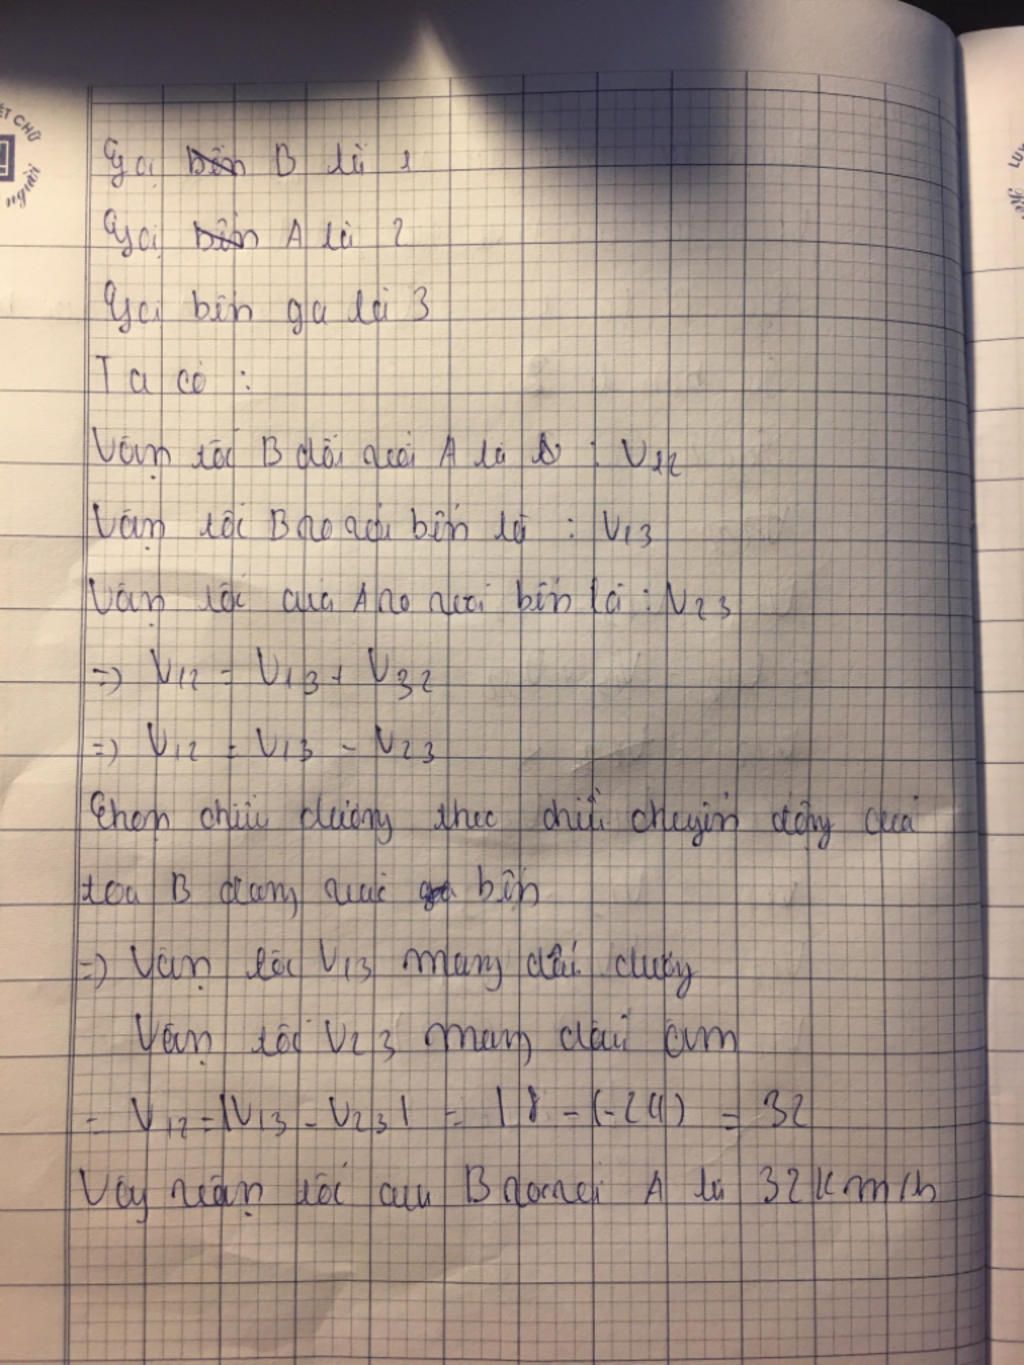 ẾT CHỮ
người
LUY
Gọi bến B là 1
Gọi bến A là 2
Gọi bến ga là 3
Ta có :
Vận tốc B đối với A là : V12
Vận tốc B so với bến là : V13
Vận tốc của A so với bến là : V23
=> V12 = V13 + V32
=> V12 = V13 - V23
Chọn chiều dương theo chiều chuyển động của
toa B đang vào bến
=> Vận tốc V13 mang dấu dương
Vận tốc V23 mang dấu âm
= V12 = |V13 - V23| = 18 - (-24) = 32
Vậy vận tốc của B so với A là 32 km/h